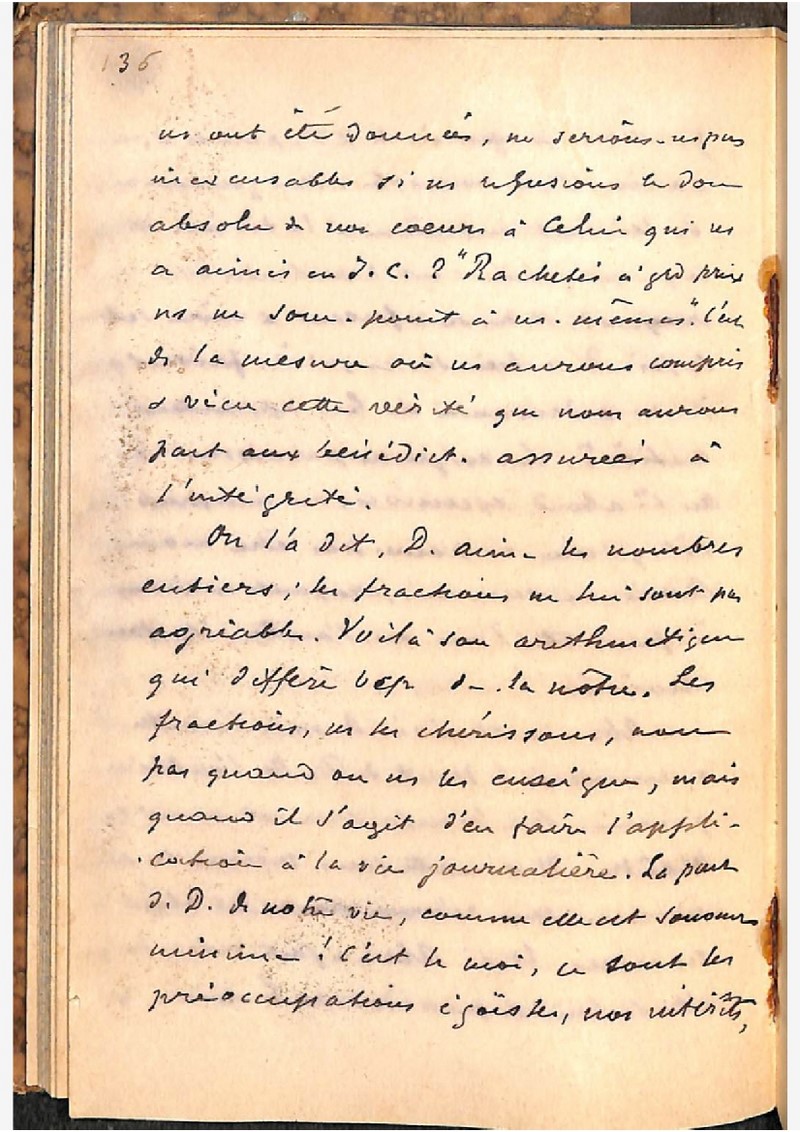 136
ns ont été données, ne serions-ns pas
inexcusables si ns refusions le don
absolu de nos coeurs à Celui qui ns
a aimés en J. C. ? "Rachetés à grd prix
ns ne som. point à ns. mêmes". C'est
ds la mesure où ns aurons compris
& vécu cette vérité que nous aurons
part aux bénédict. assurées à
l'intégrité.
On l'a dit, D. aime les nombres
entiers ; les fractions ne lui sont pas
agréables. Voilà son arithmétique
qui diffère bcp de la nôtre. Les
fractions, ns les chérissons, non
pas quand on ns les enseigne, mais
quand il s'agit d'en faire l'appli-
cation à la vie journalière. La part
d. D. ds notre vie, comme elle est souvent
minime ! C'est le moi, ce sont les
préoccupations égoïstes, nos intérêts,